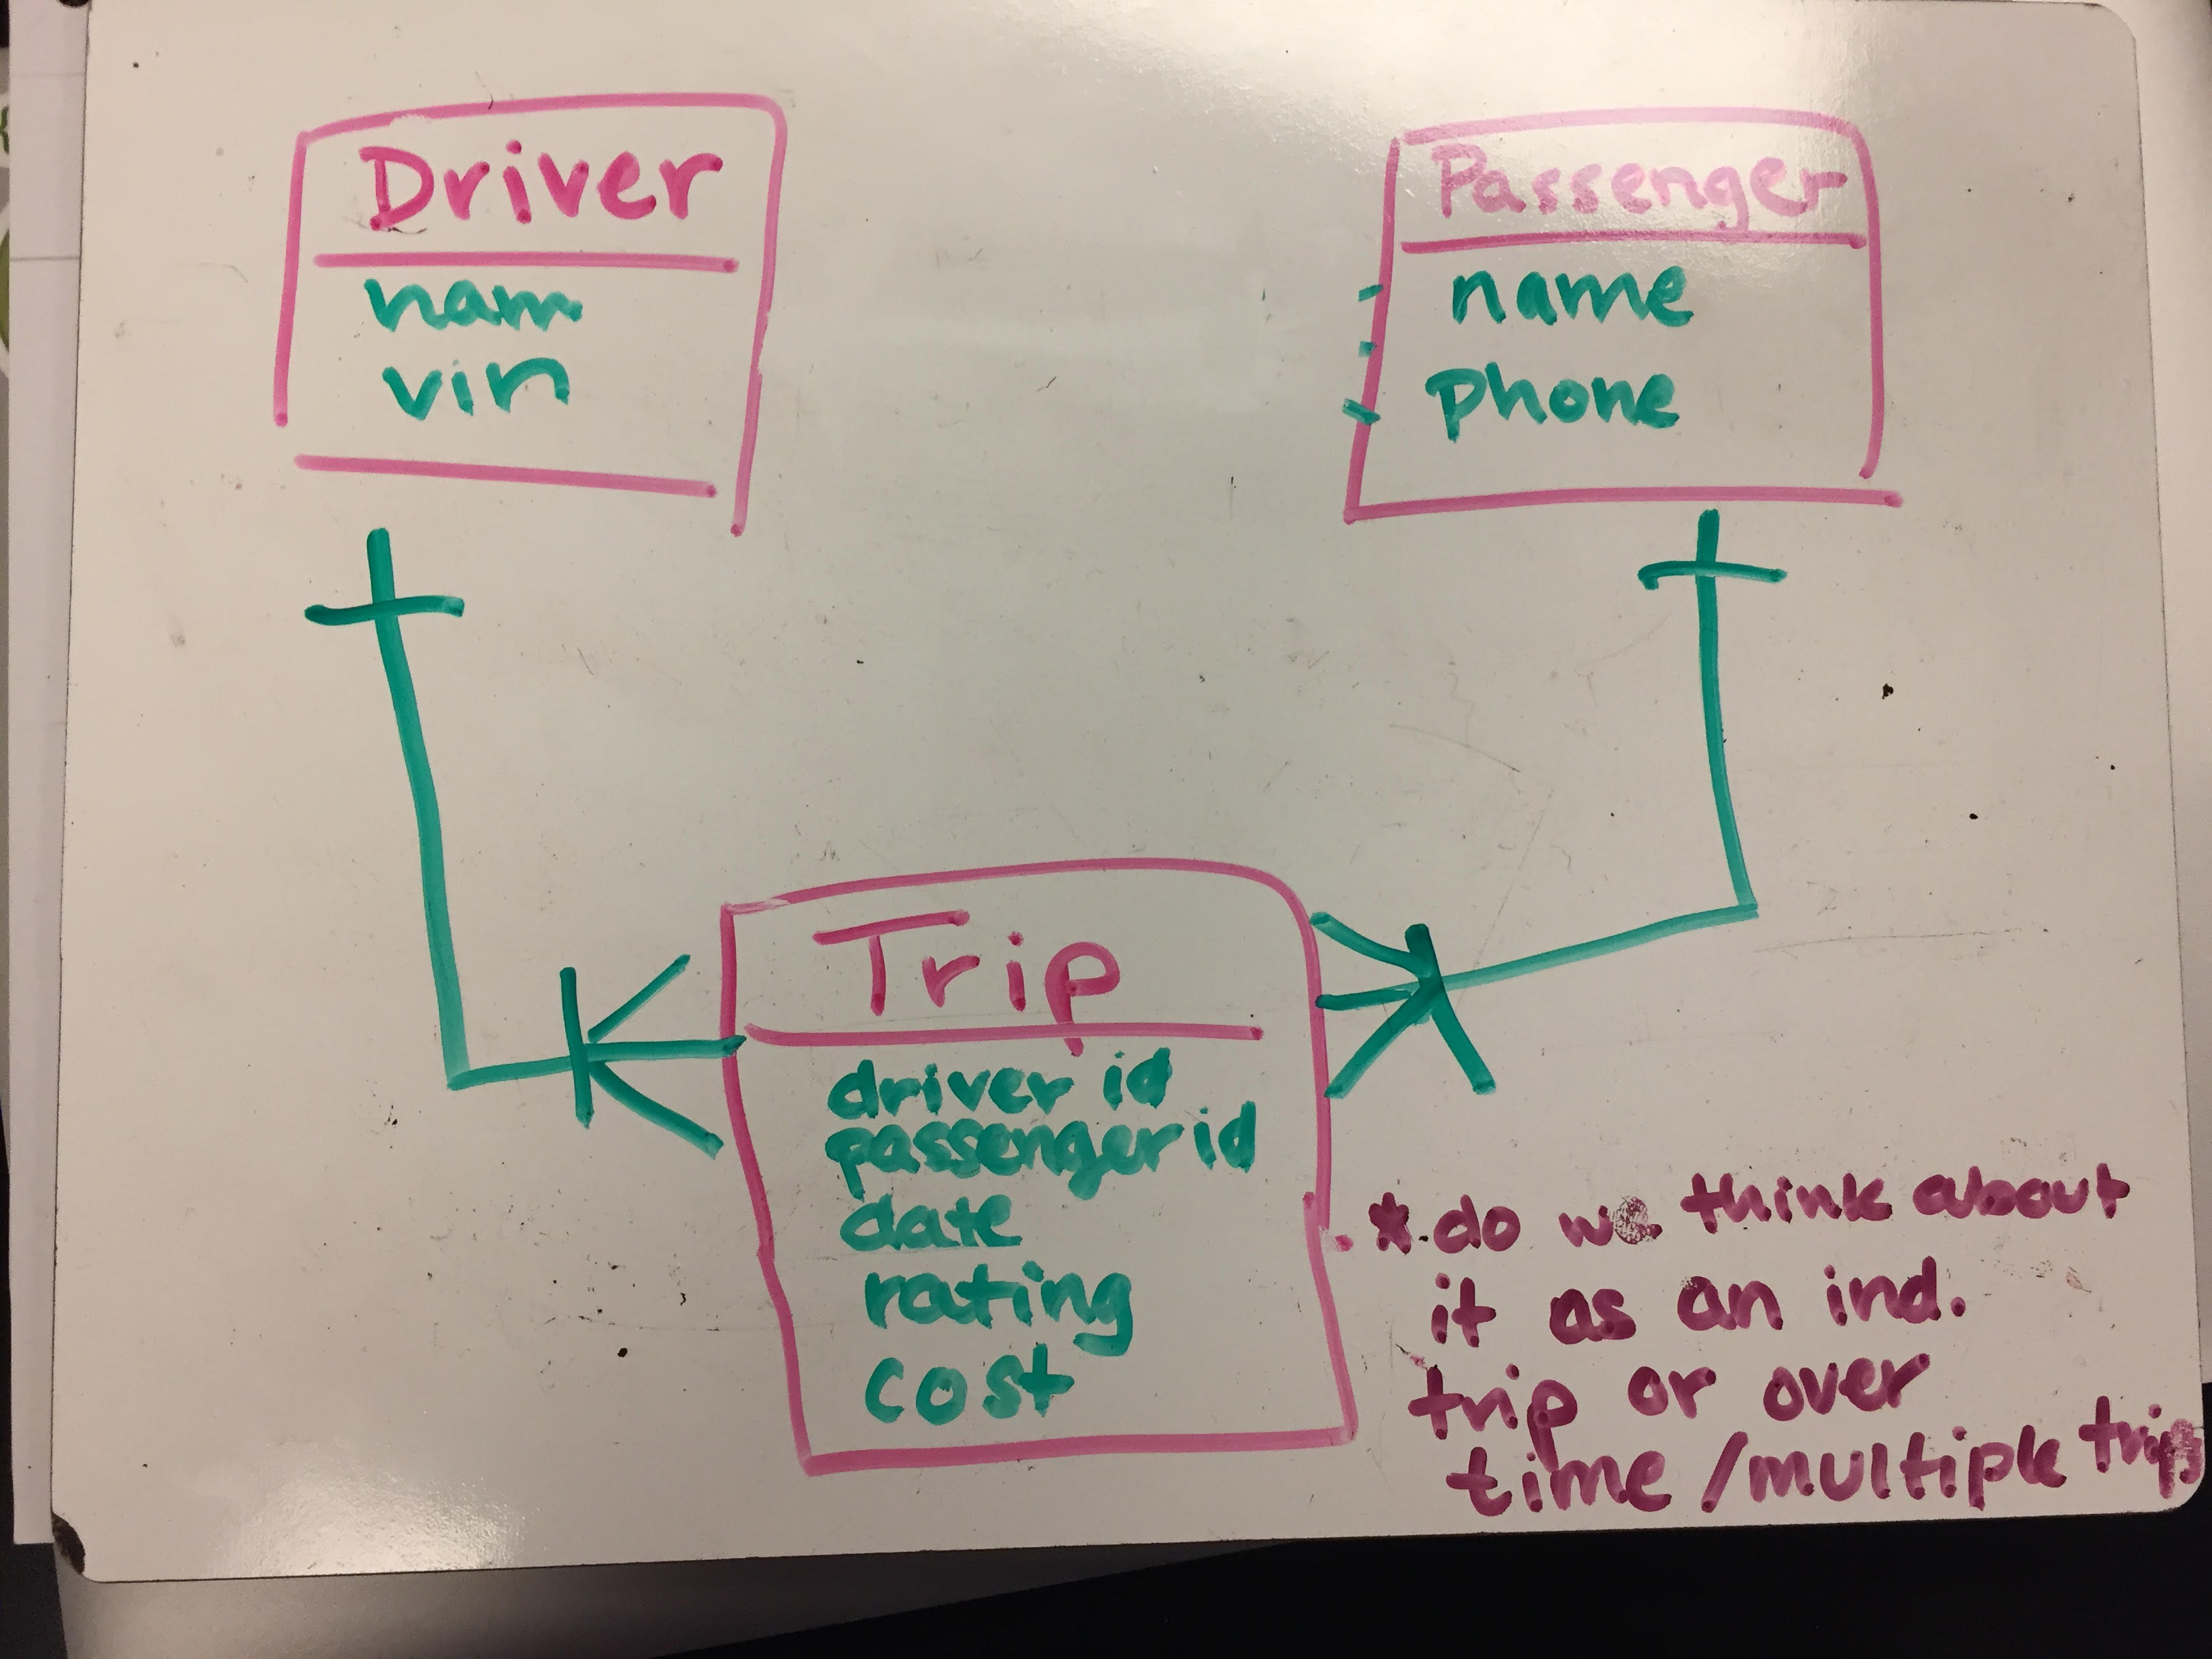 Driver
nam
vin
Passenger
name
phone
Trip
driver id
passenger id
date
rating
cost
* do we think about
it as an ind.
trip or over
time / multiple trips